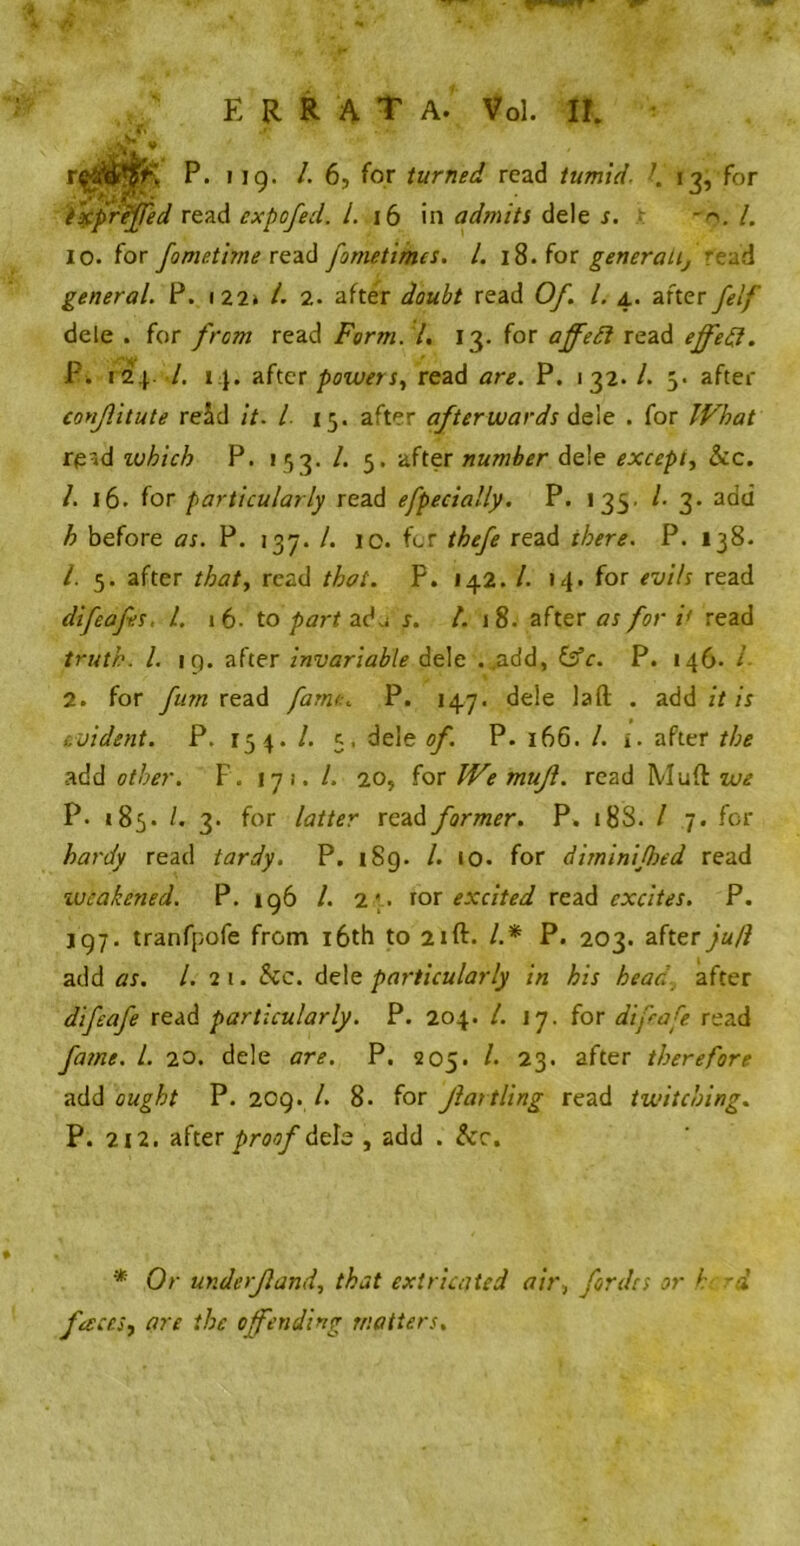 ERRATA. Vol. II.
P. 119. l. 6, for turned read tumid. l. 13, for
expreſſed read expoſed. l. 16 in admits dele s. l.
10. for ſometime read ſometimes. l. 18. for generally read
general. P. 122. l. 2. after doubt read Of. l. 4. after ſelf
dele . for from read Form. l. 13. for affect read effect.
P. 124. l. 14. after powers, read are. P. 132. l. 5. after
conſtitute read it. l. 15. after afterwards dele . for What
read which P. 153. l. 5. after number dele except, &c.
l. 16. for particularly read eſpecially. P. 135. l. 3. add
h before as. P. 137. l. 10. for theſe read there. P. 138.
l. 5. after that, read that. P. 142. l. 14. for evils read
diſeaſes. l. 16. to part add s. l. 18. after as for it read
truth. l. 19. after invariable dele . add, &c. P. 146. l.
2. for ſum read ſame. P. 147. dele laſt . add it is
evident. P. 154. l. 5, dele of. P. 166. l. 1. after the
add other. P. 171. l. 20, for We muſt. read Muſt we
P. 185. l. 3. for latter read former. P. 188. l 7. for
hardy read tardy. P. 189. l. 10. for diminiſhed read
weakened. P. 196 l. 21. for excited read excites. P.
197. tranſpoſe from 16th to 21ſt. l.* P. 203. after juſt
add as. l. 21. &c. dele particularly in his head, after
diſeaſe read particularly. P. 204. l. 17. for diſeaſe read
ſame. l. 20. dele are. P. 205. l. 23. after therefore
add ought P. 209. l. 8. for ſtartling read twitching.
P. 212. after proof dele , add . &c.
* Or underſtand, that extricated air, ſordes or hard
fæces, are the offending matters.